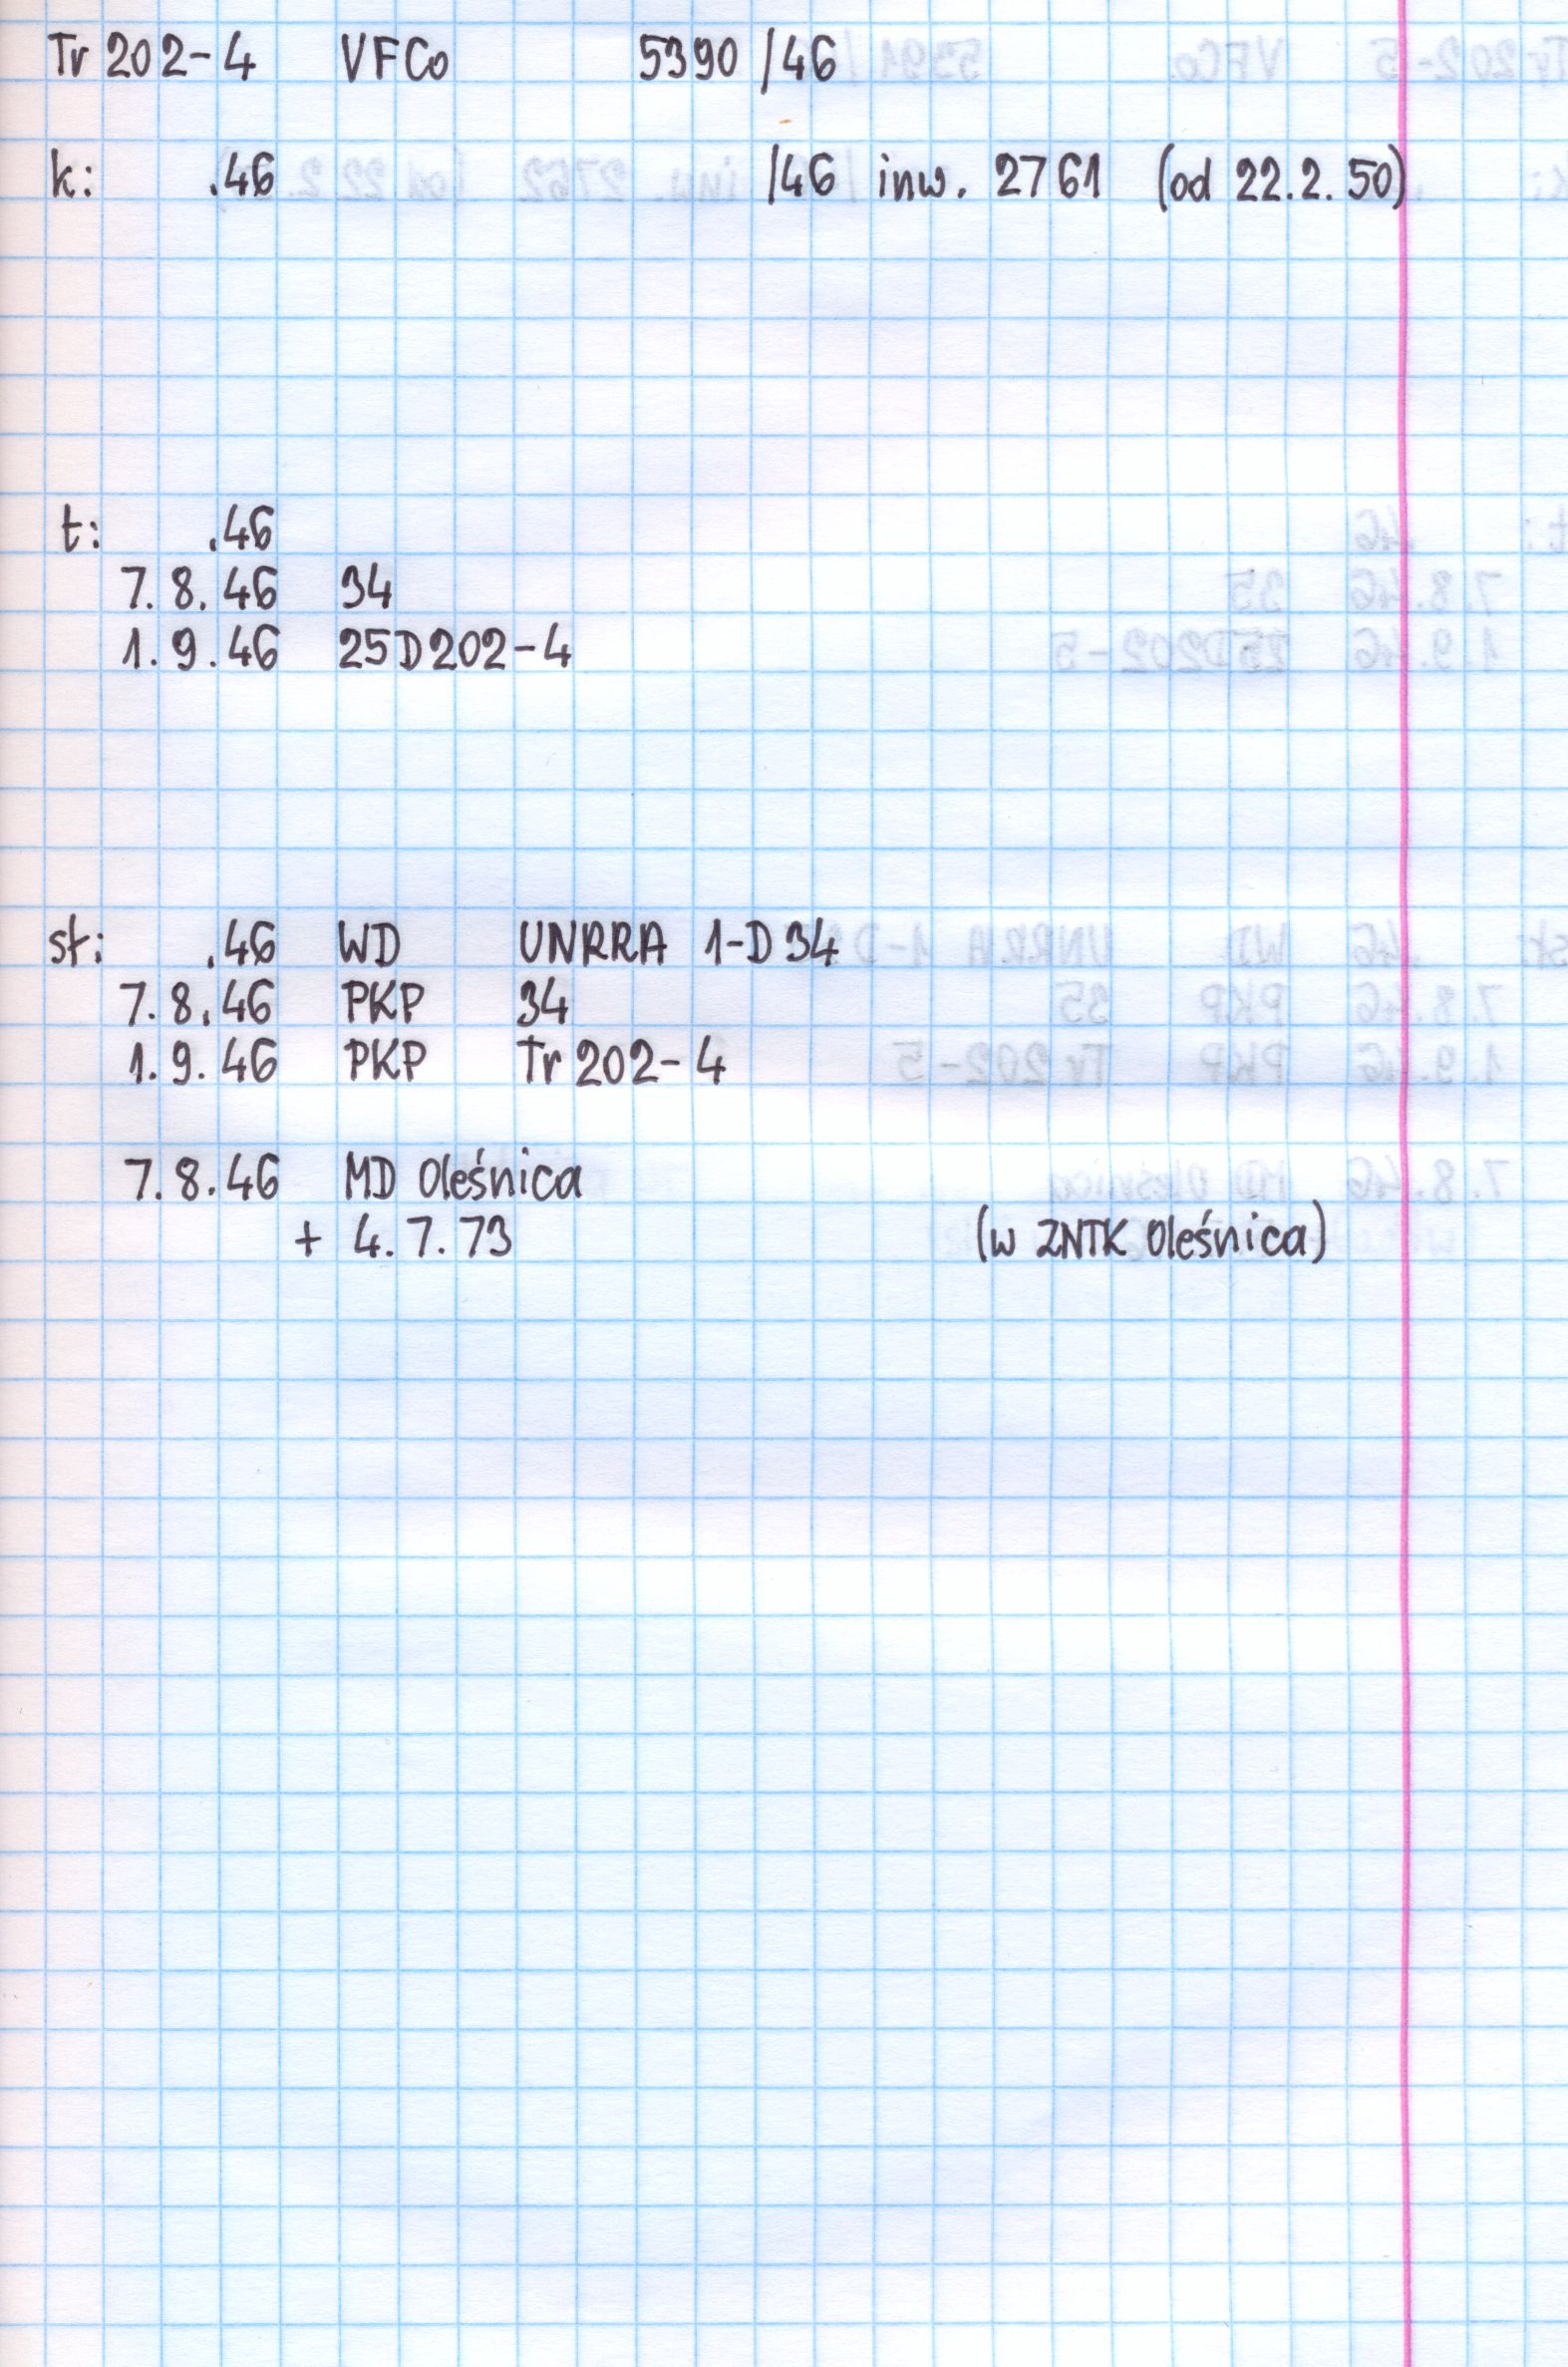 Tr 202-4 VFCo 5390 /46
k: .46 /46 inw. 2761 (od 22.2.50)
t: .46
7.8.46 34
1.9.46 25D202-4
st: .46 WD UNRRA 1-D34
7.8.46 PKP 34
1.9.46 PKP Tr 202-4
7.8.46 MD Oleśnica
+ 4.7.73 (w ZNTK Oleśnica)